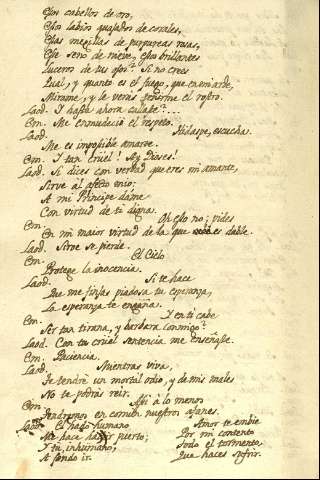 Esos cabellos de oro,
Esos labios quajados de corales,
Esas megillas de purpureas rosas,
Ese seno de nieve, esos brillantes
Luceros de tus ojos? Si no crees
Qual, y quanto es el fuego, que en mi arde,
Mirame, y le verás en el rostro.
Laod. Y hasta ahora callaste?...
Em. Me enmudeció el respeto.
Laod. Hidaspe, escucha.
Me es imposible amarte.
Em. Y tan cruel! Ay Dioses!
Laod. Si dices con verdad que eres mi amante,
Sirve al afecto mio;
A mi Principe dame
Con virtud de ti digna.
Em. Oh eso no; pides
En mi maior virtud de la que es dable.
Laod. Siroe se pierde.
Em. El Cielo
Protege la inocencia.
Laod. Si te hace
Que me finjas piadosa tu esperanza,
La esperanza te engaña.
Em. Y en ti cabe
Ser tan tirana, y barbara conmigo?
Laod. Con tu cruel sentencia me enseñaste.
Em. Paciencia.
Laod. Mientras viva,
Te tendré un mortal odio, y de mis males
No te podrás reir.
Em. Asi a lo menos
Tendremos en comun nuestros afanes.
Laod. El hado humano
Me hace puerto;
Y tu, inhumano,
A fondo ir.
Amor te embie
Por mi contento
Todo el tormento,
Que haces sufrir.